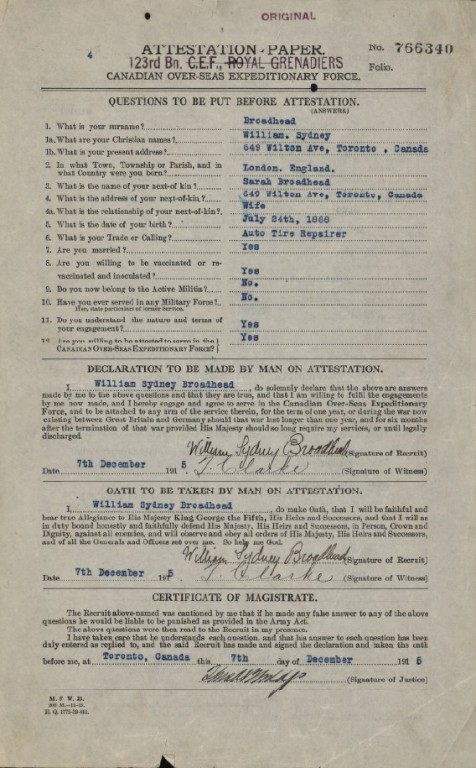 ORIGINAL
4
ATTESTATION PAPER.
No. 766340
123rd Bn. C.E.F., ROYAL GRENADIERS
Folio.
CANADIAN OVER-SEAS EXPEDITIONARY FORCE.
QUESTIONS TO BE PUT BEFORE ATTESTATION.
(ANSWERS)
1. What is your surname? Broadhead
1a. What are your Christian names? William. Sydney
1b. What is your present address? 649 Wilton Ave, Toronto , Canada
2. In what Town, Township or Parish, and in
what Country were you born? London. England.
3. What is the name of your next-of kin? Sarah Broadhead
4. What is the address of your next-of-kin? 649 Wilton Ave, Toronto, Canada
4a. What is the relationship of your next-of-kin? Wife
5. What is the date of your birth? July 24th, 1888
6. What is your Trade or Calling? Auto Tire Repairer
7. Are you married? Yes
8. Are you willing to be vaccinated or re-
vaccinated and inoculated? Yes
9. Do you now belong to the Active Militia? No.
10. Have you ever served in any Military Force? No.
If so, state particulars of former Service.
11. Do you understand the nature and terms of
your engagement? Yes
12. Are you willing to be attested to serve in the
CANADIAN OVER-SEAS EXPEDITIONARY FORCE? Yes
DECLARATION TO BE MADE BY MAN ON ATTESTATION.
I, William Sydney Broadhead, do solemnly declare that the above are answers
made by me to the above questions and that they are true, and that I am willing to fulfil the engagements
by me now made, and I hereby engage and agree to serve in the Canadian Over-Seas Expeditionary
Force, and to be attached to any arm of the service therein, for the term of one year, or during the war now
existing between Great Britain and Germany should that war last longer than one year, and for six months
after the termination of that war provided His Majesty should so long require my services, or until legally
discharged.
William Sydney Broadhead (Signature of Recruit)
Date 7th December 1915 T Clarke (Signature of Witness)
OATH TO BE TAKEN BY MAN ON ATTESTATION.
I, William Sydney Broadhead, do make Oath, that I will be faithful and
bear true Allegiance to His Majesty King George the Fifth, His Heirs and Successors, and that I will as
in duty bound honestly and faithfully defend His Majesty, His Heirs and Successors, in Person, Crown and
Dignity, against all enemies, and will observe and obey all orders of His Majesty, His Heirs and Successors,
and of all the Generals and Officers set over me. So help me God.
William Sydney Broadhead (Signature of Recruit)
Date 7th December 1915 T Clarke (Signature of Witness)
CERTIFICATE OF MAGISTRATE.
The Recruit above-named was cautioned by me that if he made any false answer to any of the above
questions he would be liable to be punished as provided in the Army Act.
The above questions were then read to the Recruit in my presence.
I have taken care that he understands each question, and that his answer to each question has been
duly entered as replied to, and the said Recruit has made and signed the declaration and taken the oath
before me, at Toronto, Canada this 7th day of December 1915
(Signature of Justice)
M. F. W. 23.
H. Q. 1772-39-841.